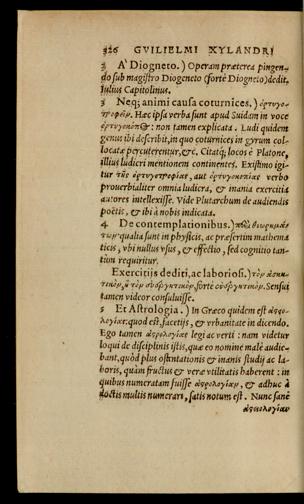 326 GVILIELMI XYLANDRI
2 A' Diogneto.) Operam præterea pingen-
do sub magistro Diogeneto (fortè Diogneto) dedit.
Iulius Capitolinus.
3 Neq; animi causa coturnices.) ὀρτυγο-
τροφεῖν. Hæc ipsa verba sunt apud Suidam in voce
: non tamen explicata. Ludi quidem
genus ibi describit, in quo coturnices in gyrum col-
locatæ percuterentur, &c. Citatq; locos è Platone,
illius ludicri mentionem continentes. Existimo igi-
tur τῆς ὀρτυγοτροφίας, aut verbo
prouerbialiter omnia ludicra, & inania exercitia
autores intellexisse. Vide Plutarchum de audiendis
poëtis, & ibi à nobis indicata.
4 De contemplationibus.)
qualia sunt in physicis, ac præsertim mathema
ticis, vbi nullus vsus, & effectio, sed cognitio tan-
tùm requiritur.
Exercitijs dediti, ac laboriosi.) τὸν ἀσκη-
τικὸν, fortè Sensui
tamen videor consuluisse.
5 Et Astrologia.) In Græco quidem est ἀστρο-
λογίαν: quod est, facetijs, & vrbanitate in dicendo.
Ego tamen ἀστρολογίας legi ac verti: nam videtur
loqui de disciplinis istis, quæ eo nomine malè audie-
bant, quòd plus ostentationis & inanis studij ac la-
boris, quàm fructus & veræ vtilitatis haberent: in
quibus numeratam fuisse ἀστρολογίαν, & adhuc à
doctis multis numerari, satis notum est. Nunc sanè